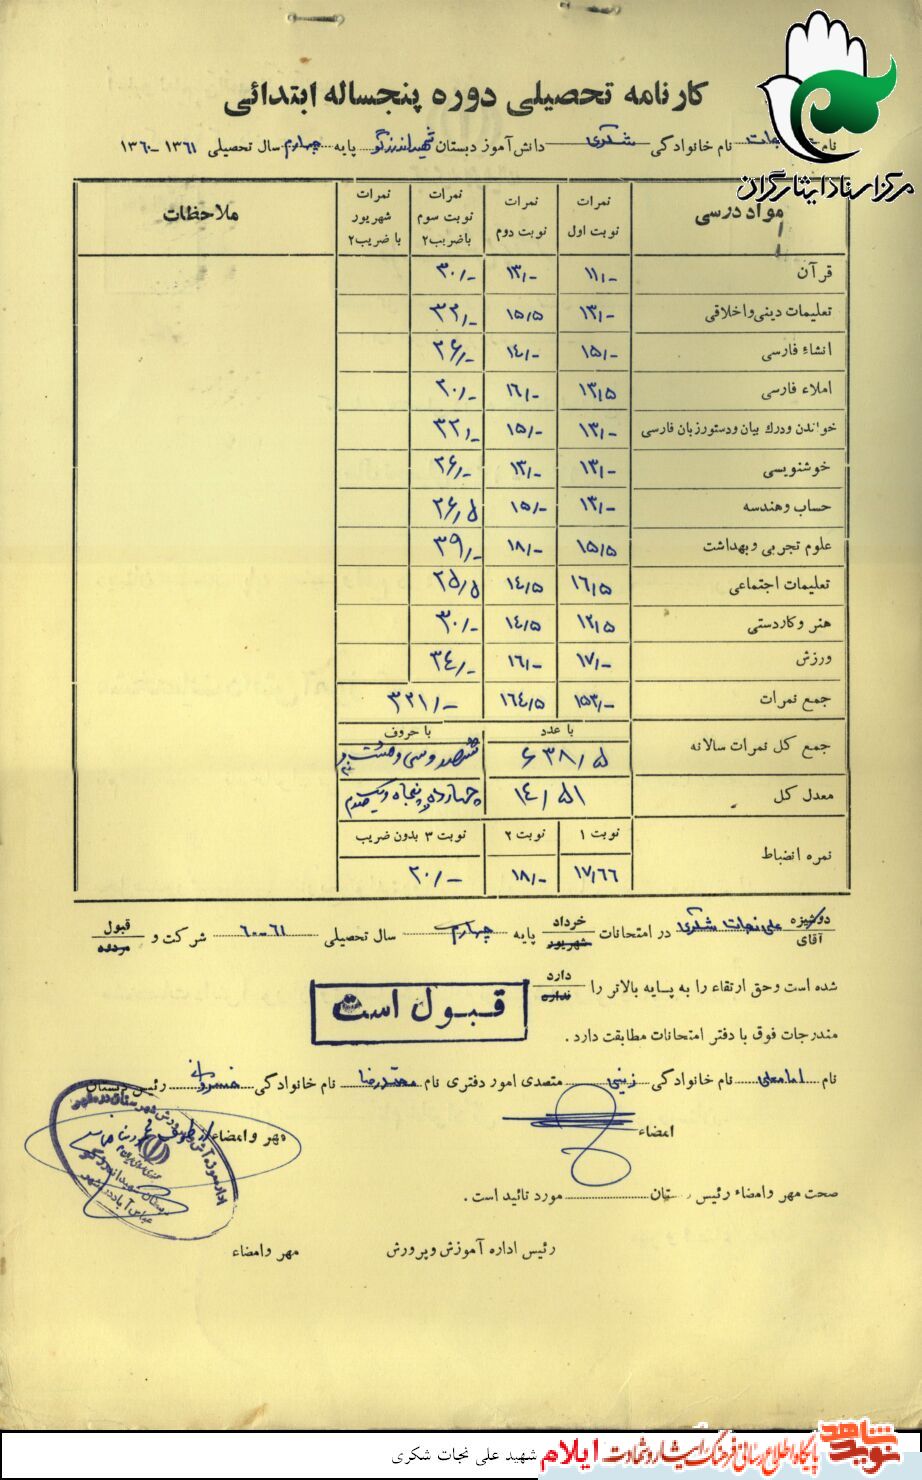 مرکز اسناد ایثارگران
کارنامه تحصیلی دوره پنجساله ابتدائی
نام نجات نام خانوادگی شکری دانش‌آموز دبستان شهید اندرزگو پایه چهارم سال تحصیلی ۱۳۶۱-۱۳۶۰
مواد درسی نمرات نوبت اول نمرات نوبت دوم نمرات نوبت سوم باضریب۲ نمرات شهریور با ضریب۲ ملاحظات
قرآن ۱۱/- ۱۳/- ۳۰/-
تعلیمات دینی و اخلاقی ۱۳/- ۱۵/۵ ۳۲/-
انشاء فارسی ۱۵/- ۱۴/- ۲۶/-
املاء فارسی ۱۳/۵ ۱۶/- ۲۰/-
خواندن و درك بیان و دستورزبان فارسی ۱۳/- ۱۵/- ۳۲/-
خوشنویسی ۱۳/- ۱۳/- ۲۶/-
حساب و هندسه ۱۳/- ۱۵/- ۲۶/۵
علوم تجربی و بهداشت ۱۵/۵ ۱۸/- ۳۹/-
تعلیمات اجتماعی ۱۶/۵ ۱۴/۵ ۲۵/۵
هنر و کاردستی ۱۲/۵ ۱۴/۵ ۳۰/-
ورزش ۱۷/- ۱۶/- ۳۴/-
جمع نمرات ۱۵۳/- ۱۶۴/۵ ۳۲۱/-
با عدد با حروف
جمع کل نمرات سالانه ۶۳۸/۵ ششصد و سی و هشت و نیم
معدل کل ۱۴/۵۱ چهارده و پنجاه و یک صدم
نمره انضباط نوبت ۱ نوبت ۲ نوبت ۳ بدون ضریب
۱۷/۶۶ ۱۸/- ۲۰/-
دوشیزه آقای علی نجات شکری در امتحانات خرداد شهریور پایه چهارم سال تحصیلی ۶۱-۶۰ شرکت و قبول مردود
شده است و حق ارتقاء را به پایه بالاتر را دارد ندارد
قبول است
مندرجات فوق با دفتر امتحانات مطابقت دارد .
نام امامعلی نام خانوادگی زینی متصدی امور دفتری نام محمدرضا نام خانوادگی خسروانی رئیس دبستان
امضاء مهر و امضاء
صحت مهر و امضاء رئیس دبستان مورد تائید است .
رئیس اداره آموزش و پرورش مهر و امضاء
نوید شاهد پایگاه اطلاع رسانی فرهنگ ایثار و شهادت ایلام شهید علی نجات شکری